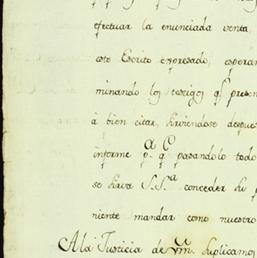 efectuar la enunciada venta
este Escrito expresado, esperan
minando los testigos q.e presen
à bien citar, sirviendose despues
informe p.a q.e pasandolo todo
se sirva S.S.ria conceder su p
niente mandar como nuestro
A la Justicia de Vm. suplicamos